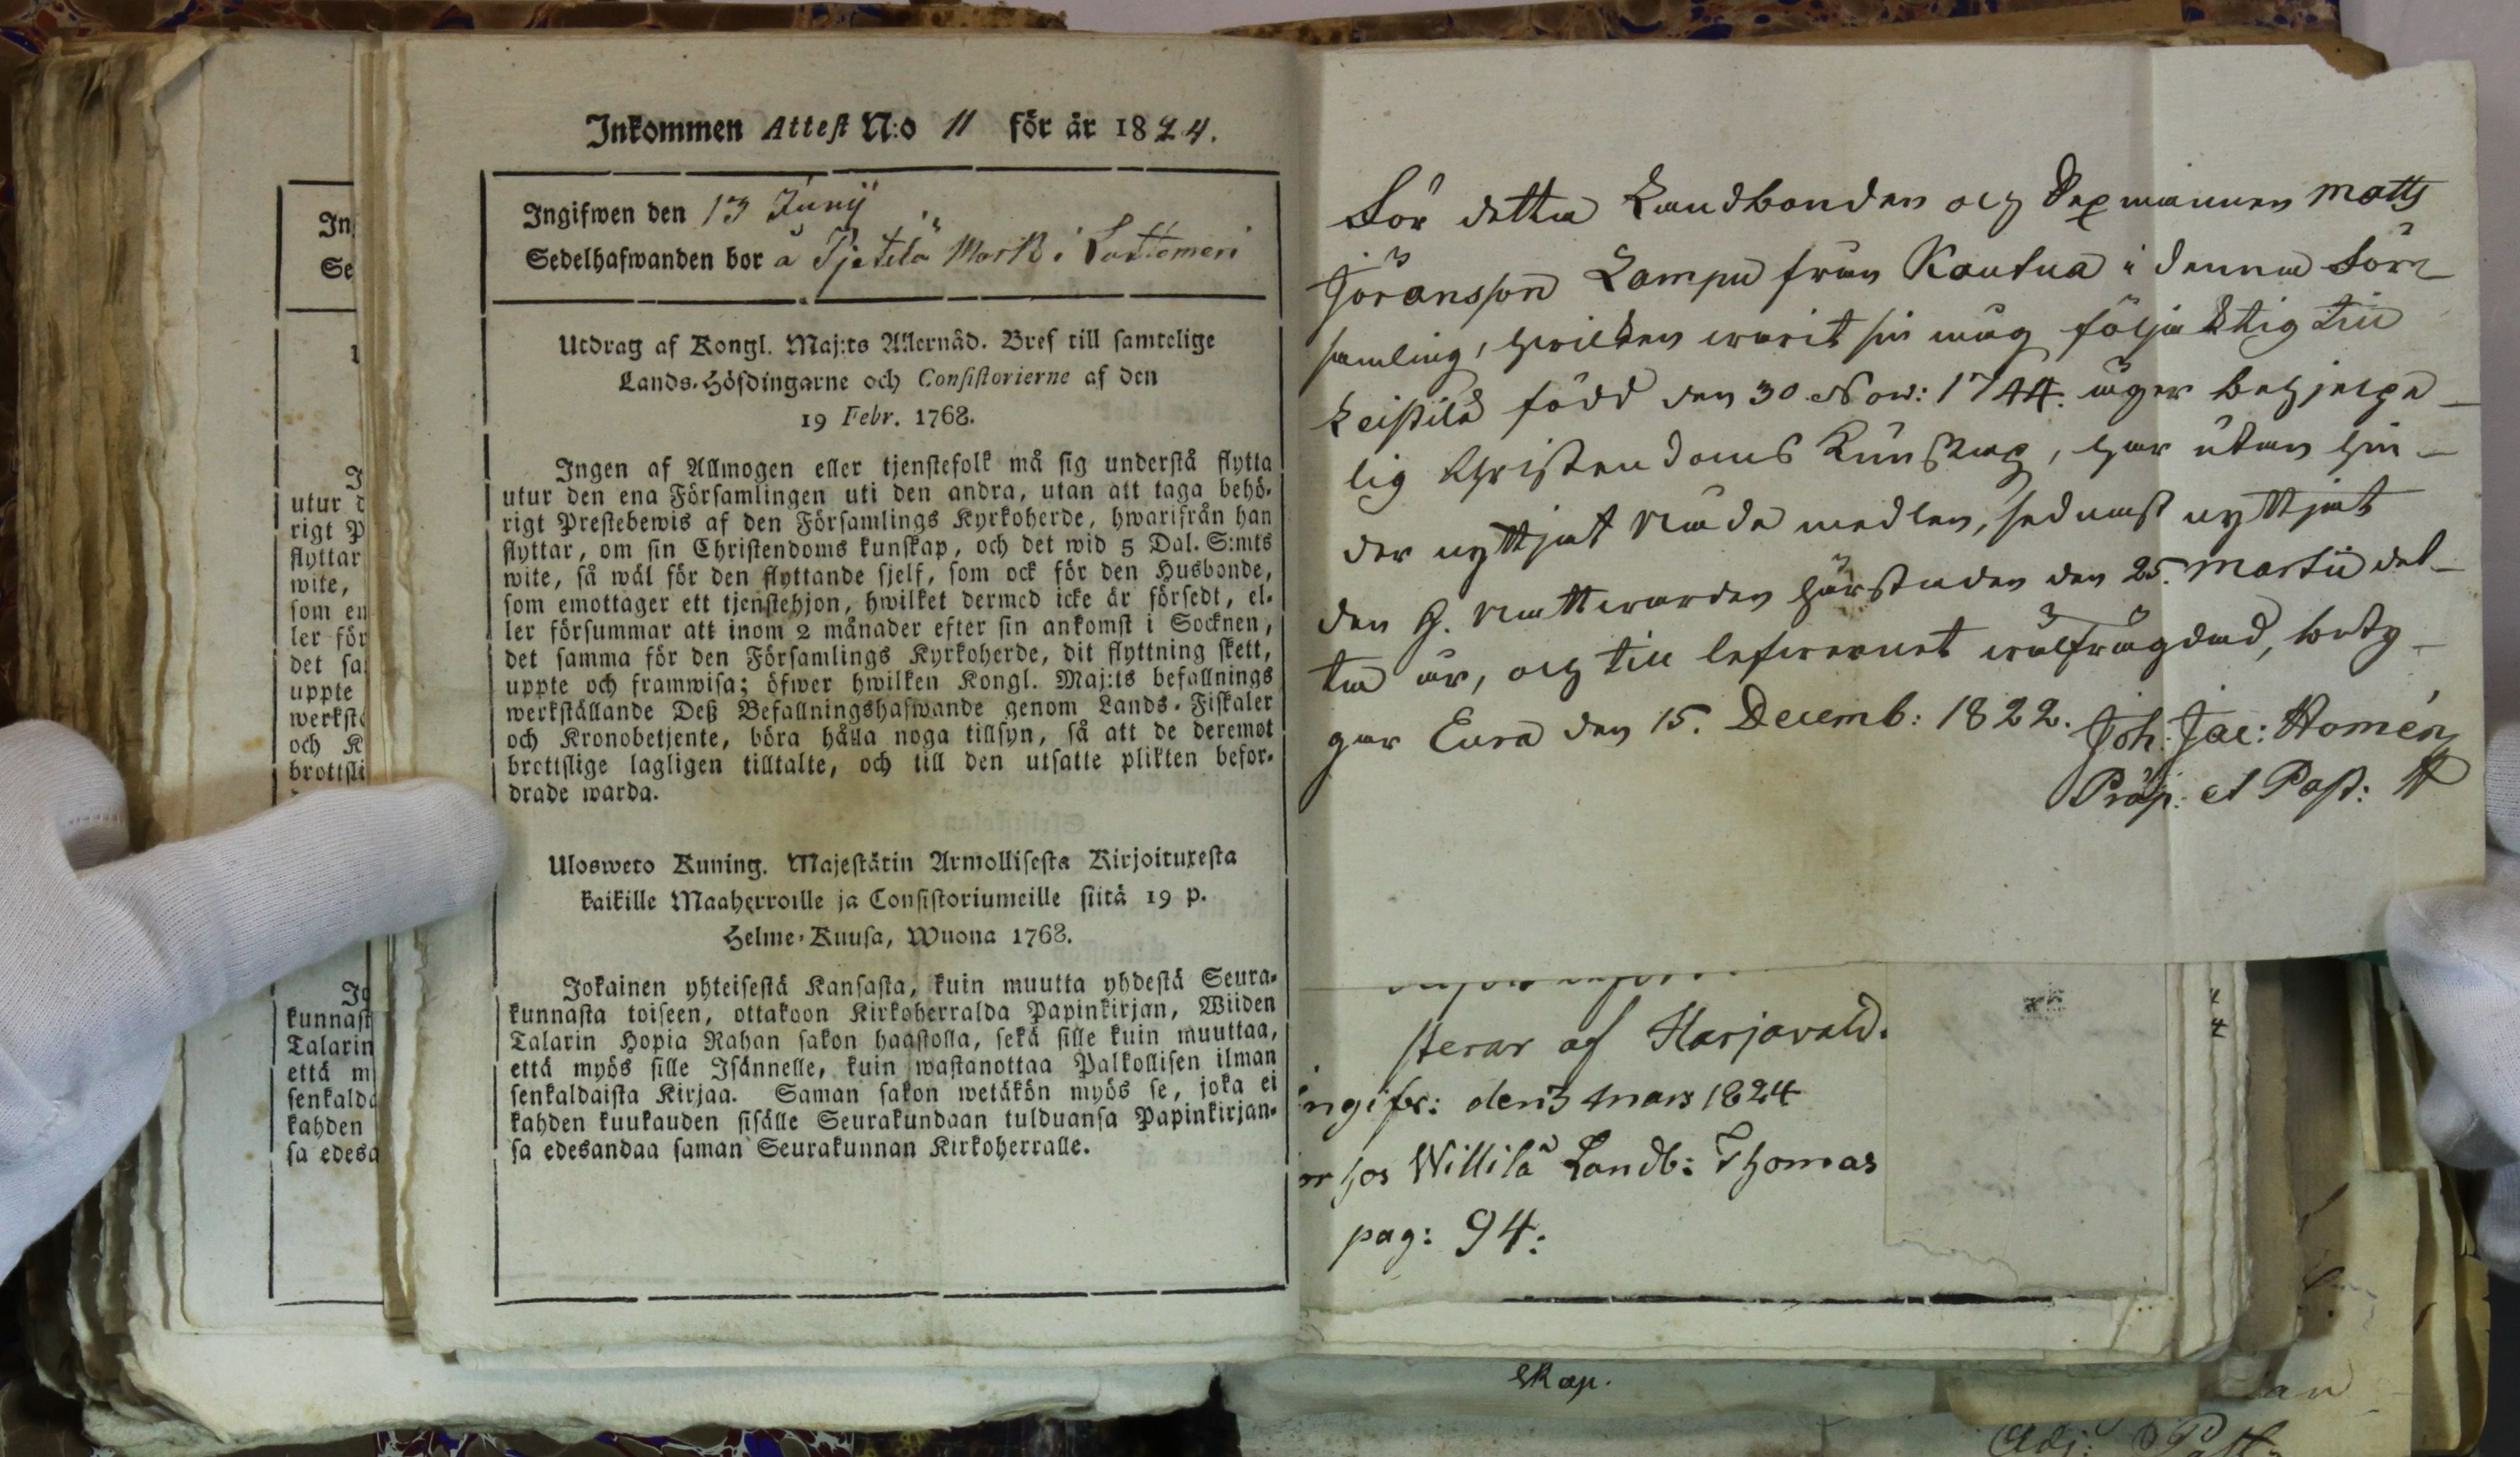 Inkommen Attest N:o 11 för år 1824.
Ingifwen den 13 Junij
Sedelhafwanden bor å Pjetilä Mark i Lattomeri
Utdrag af Kongl. Maj:ts Allernåd. Bref till samtelige
Lands-Höfdingarne och Consistorierne af den
19 Febr. 1768.
Ingen af Allmogen eller tjenstefolk må sig understå flytta
utur den ena Församlingen uti den andra, utan att taga behö-
rigt Prestebewis af den Församlings Kyrkoherde, hwarifrån han
flyttar, om sin Christendoms kunskap, och det wid 5 Dal. S:mts
wite, så wäl för den flyttande sjelf, som ock för den Husbonde,
som emottager ett tjenstehjon, hwilket dermed icke är försedt, el-
ler försummar att inom 2 månader efter sin ankomst i Socknen,
det samma för den Församlings Kyrkoherde, dit flyttning skett,
uppte och framwisa; öfwer hwilken Kongl. Maj:ts befallnings
werkställande Deß Befallningshafwande genom Lands-Fiskaler
och Kronobetjente, böra hålla noga tillsyn, så att de deremot
brottslige lagligen tilltalte, och till den utsatte plikten befor-
drade warda.
Ulosweto Kuning. Majestätin Armollisesta Kirjoituxesta
kaikille Maaherroille ja Consistoriumeille siitä 19 p.
Helme-Kuusa, Wuona 1768.
Jokainen yhteisestä Kansasta, kuin muutta yhdestä Seura-
kunnasta toiseen, ottakoon Kirkoherralda Papinkirjan, Wiiden
Talarin Hopia Rahan sakon haastolla, sekä sille kuin muuttaa,
että myös sille Isännelle, kuin wastanottaa Palkollisen ilman
senkaldaista Kirjaa. Saman sakon wetäkön myös se, joka ei
kahden kuukauden sisälle Seurakundaan tulduansa Papinkirjan-
sa edesandaa saman Seurakunnan Kirkoherralle.
In
Se
utur d
rigt P
flyttar
wite,
som en
ler för
det sa
uppte
werkstä
och K
brottsli
Jo
kunnast
Talarin
että m
senkalda
kahden
sa edesa
För detta Landbonden och Sexmannen Matts
Jöransson Lampu från Kautua i denna För-
samling, hwilken warit sin måg följaktig till
Leistilä född den 30 Nov: 1744. äger behjelpe-
lig Christendoms Kunskap, har utan hin-
der nyttjat Nådemedlen, sednast nyttjat
den H. Nattwarden härstädes den 25. Martii det-
ta år, och till lefwernet wälfrägdad, bety-
gar Eura den 15. Decemb: 1822. Joh: Jac: Homén
Präp. et Past:
sterar af Harjavald.
ngifv: den 3 Mars 1824
or hos Willilä Landb: Thomas
pag: 94:
skap.
Adj: Past: